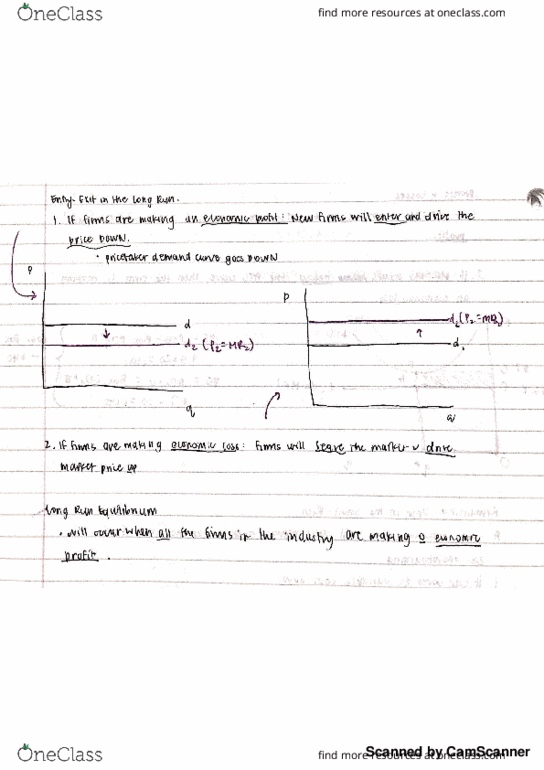 OneClass
find more resources at oneclass.com
Entry-Exit in the Long Run.
1. If firms are making an economic profit: New firms will enter and drive the
price DOWN.
• pricetaker demand curve goes DOWN
P
d
d2 (P2=MR2)
q
P
d2(P2=MR2)
d1
q
2. If firms are making economic loss: firms will leave the market & drive
market price up
Long Run Equilibrium
• will occur when all the firms in the industry are making 0 economic
profit.
OneClass
find more resources at oneclass.com
Scanned by CamScanner